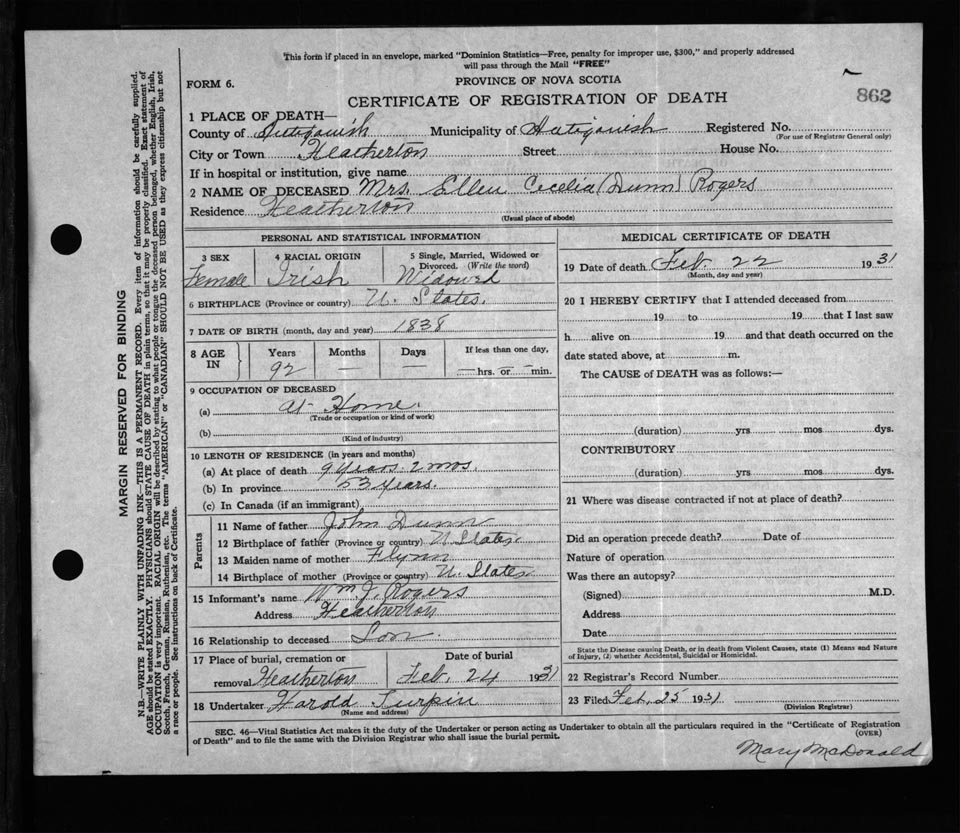 This form if placed in an envelope, marked "Dominion Statistics—Free, penalty for improper use, $300," and properly addressed
will pass through the Mail "FREE"
FORM 6.
PROVINCE OF NOVA SCOTIA
862
CERTIFICATE OF REGISTRATION OF DEATH
1 PLACE OF DEATH—
County of Antiganish Municipality of Antiganish Registered No.
(For use of Registrar General only)
City or Town Heatherton Street House No.
If in hospital or institution, give name
2 NAME OF DECEASED Mrs. Ellen Cecelia (Dunn) Rogers
Residence Heatherton
(Usual place of abode)
PERSONAL AND STATISTICAL INFORMATION
3 SEX 4 RACIAL ORIGIN 5 Single, Married, Widowed or
Divorced. (Write the word)
Female Irish Widowed
6 BIRTHPLACE (Province or country) U. States.
7 DATE OF BIRTH (month, day and year) 1838
8 AGE IN Years Months Days If less than one day,
92 — — — hrs. or — min.
9 OCCUPATION OF DECEASED
(a) At Home.
(Trade or occupation or kind of work)
(b)
(Kind of industry)
10 LENGTH OF RESIDENCE (in years and months)
(a) At place of death 9 years. 2 mos.
(b) In province 53 years.
(c) In Canada (if an immigrant)
Parents
11 Name of father John Dunn
12 Birthplace of father (Province or country) U States.
13 Maiden name of mother Flynn
14 Birthplace of mother (Province or country) U. States
15 Informant's name Wm J. Rogers
Address Heatherton
16 Relationship to deceased Son.
17 Place of burial, cremation or Date of burial
removal Heatherton Feb. 24 1931
18 Undertaker Harold Turpin
(Name and address)
MEDICAL CERTIFICATE OF DEATH
19 Date of death Feb. 22 1931
(Month, day and year)
20 I HEREBY CERTIFY that I attended deceased from
19 to 19 that I last saw
h alive on 19 and that death occurred on the
date stated above, at m.
The CAUSE of DEATH was as follows:—
(duration) yrs mos dys.
CONTRIBUTORY
(duration) yrs mos dys.
21 Where was disease contracted if not at place of death?
Did an operation precede death? Date of
Nature of operation
Was there an autopsy?
(Signed) M.D.
Address
Date
State the Disease causing Death, or in death from Violent Causes, state (1) Means and Nature
of Injury, (2) whether Accidental, Suicidal or Homicidal.
22 Registrar's Record Number
23 Filed Feb. 25 1931
(Division Registrar)
SEC. 46—Vital Statistics Act makes it the duty of the Undertaker or person acting as Undertaker to obtain all the particulars required in the "Certificate of Registration
of Death" and to file the same with the Division Registrar who shall issue the burial permit.
(OVER)
Mary McDonald
MARGIN RESERVED FOR BINDING
N.B.—WRITE PLAINLY WITH UNFADING INK—THIS IS A PERMANENT RECORD. Every item of information should be carefully supplied.
AGE should be stated EXACTLY. PHYSICIANS should STATE CAUSE OF DEATH in plain terms, so that it may be properly classified. Exact statement of
OCCUPATION is very important. RACIAL ORIGIN will be described by stating to what people or tongue the deceased person belonged, whether English, Irish,
Scotch, French, German, Russian, Ruthenian, etc. The terms "AMERICAN" or "CANADIAN" SHOULD NOT BE USED as they express citizenship but not
a race or people. See instructions on back of Certificate.